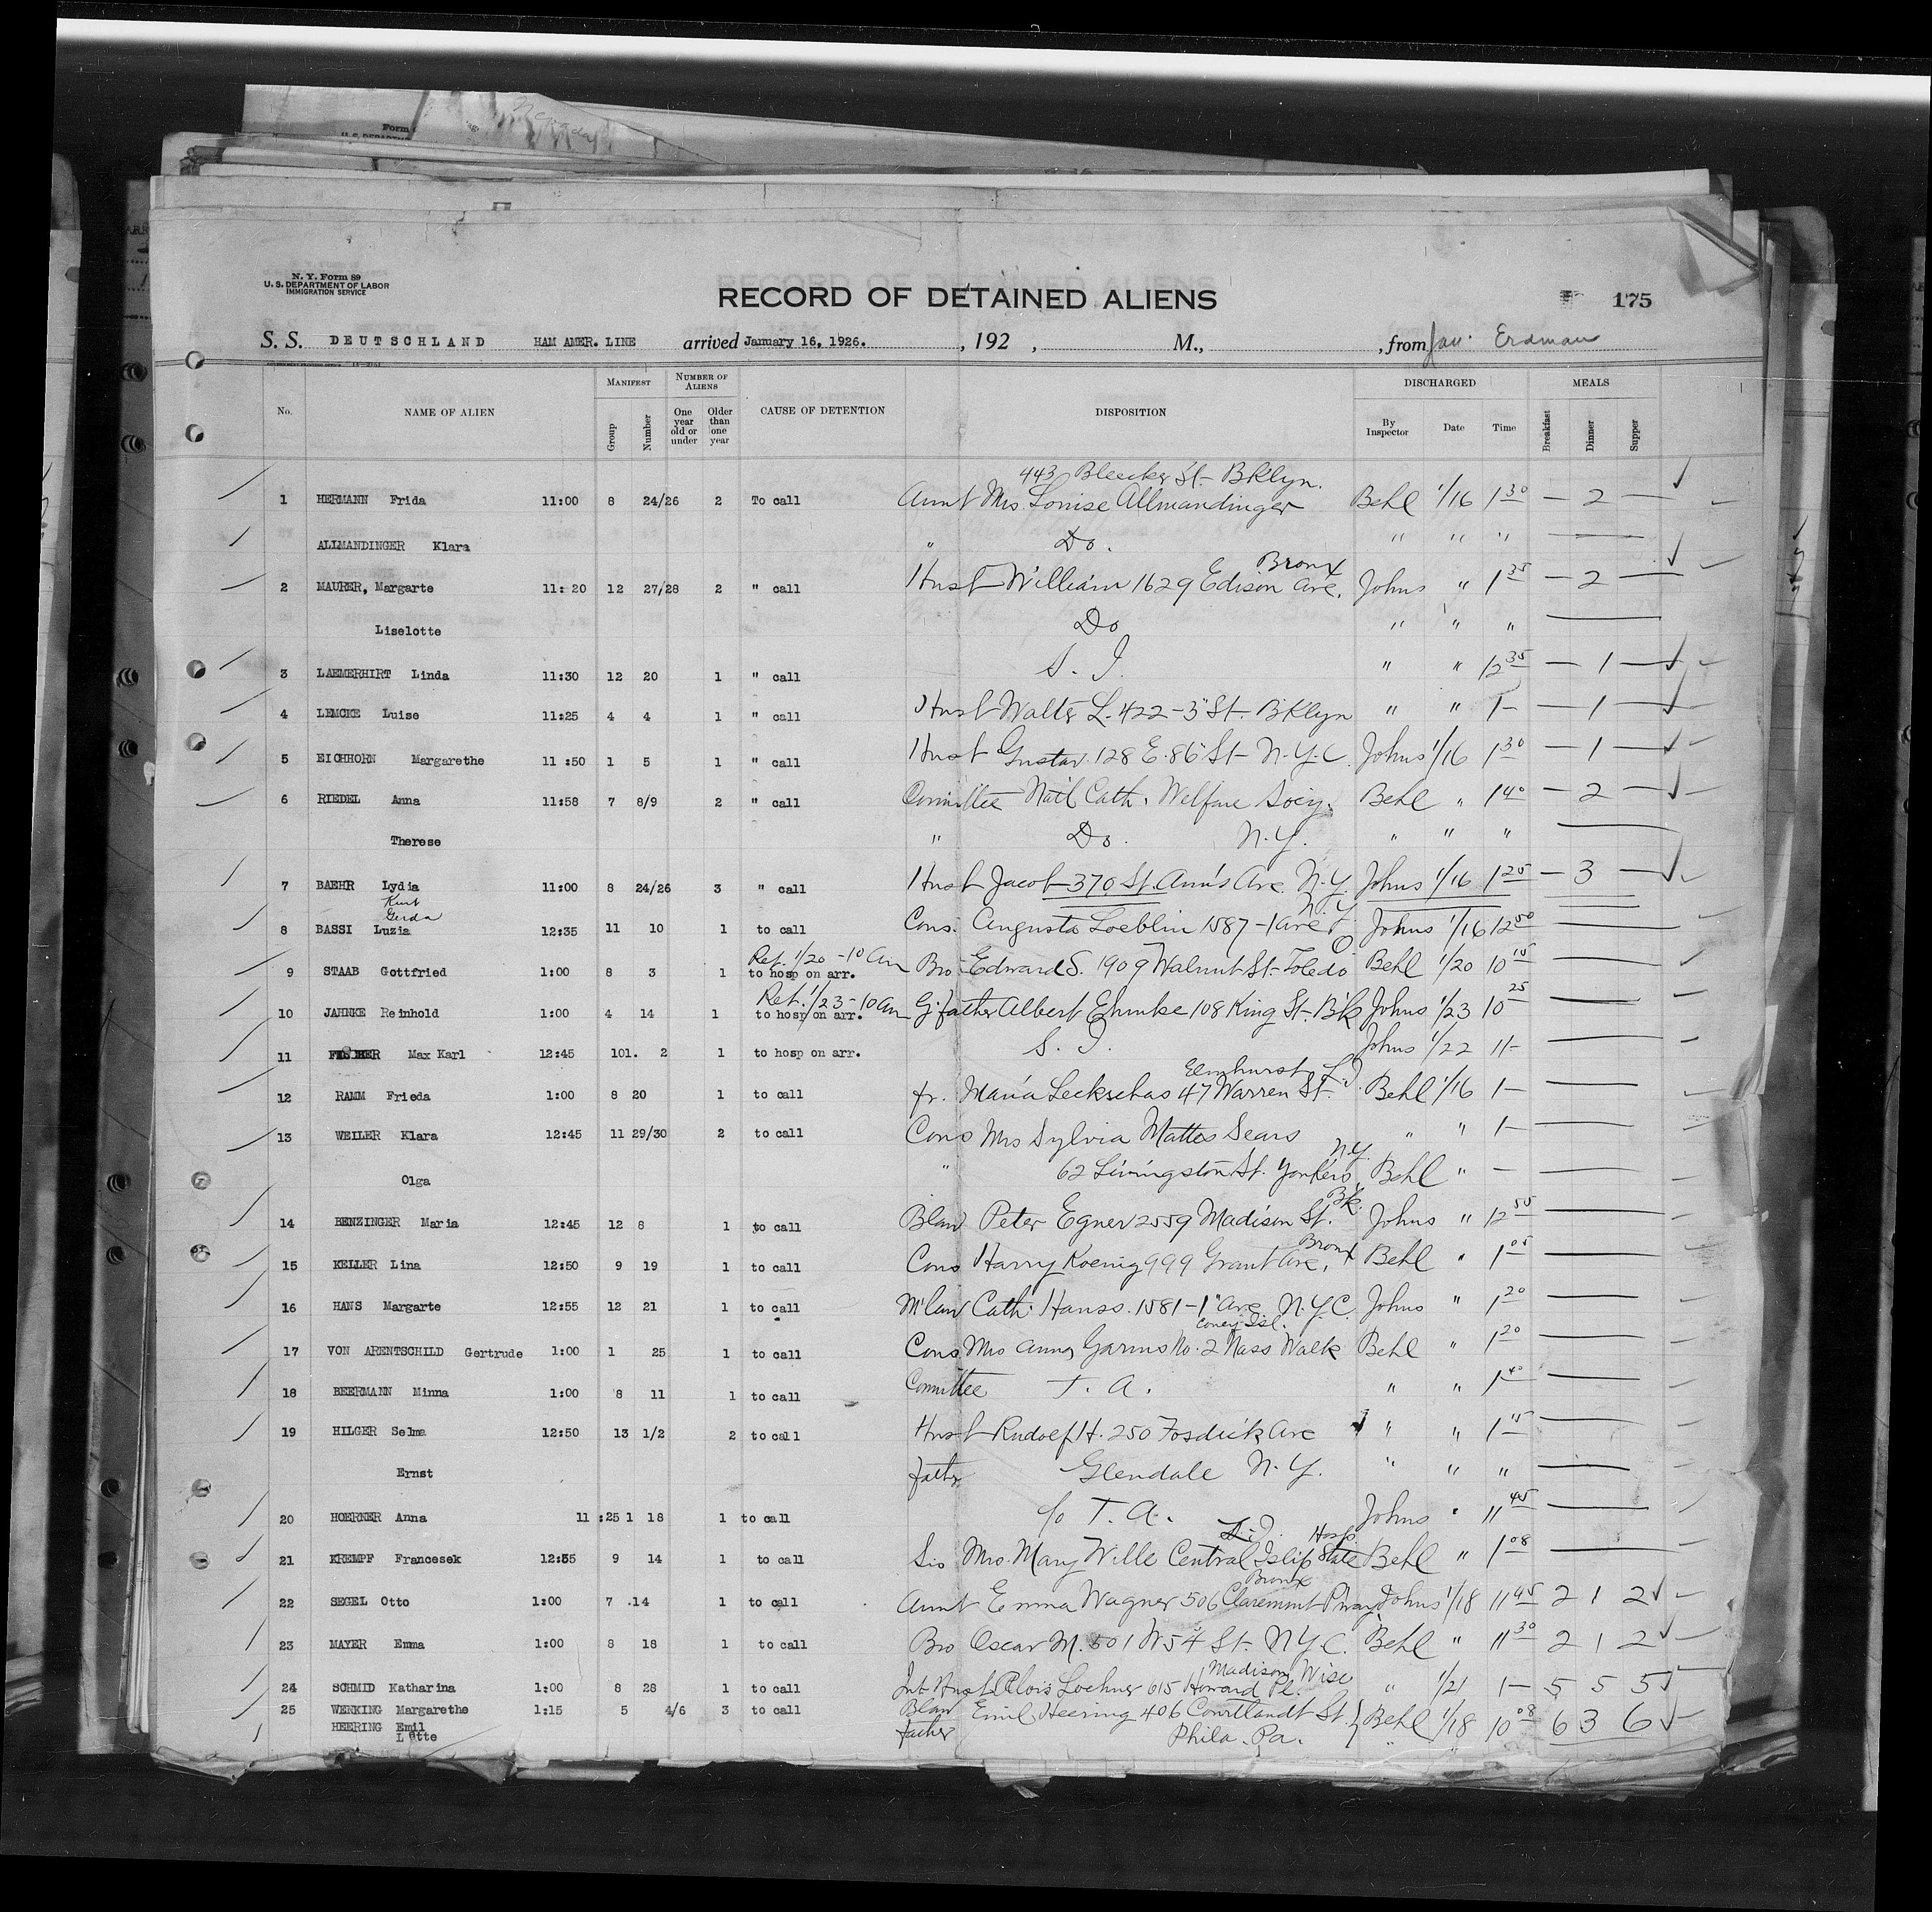 N. Y. Form 89
U. S. DEPARTMENT OF LABOR
IMMIGRATION SERVICE
RECORD OF DETAINED ALIENS
175
S. S. DEUTSCHLAND HAM AMER. LINE arrived January 16, 1926. , 192 , M., , from Erdman
No. NAME OF ALIEN MANIFEST Group Number NUMBER OF ALIENS One year old or under Older than one year CAUSE OF DETENTION DISPOSITION DISCHARGED By Inspector Date Time MEALS Breakfast Dinner Supper
443 Bleecker St- Bklyn.
1 HERMANN Frida 11:00 8 24/26 2 To call Aunt Mrs. Louise Allmandinger Behl 1/16 1 30 — 2 —
ALLMANDINGER Klara " Do. " " "
Bronx
2 MAURER, Margarte 11:20 12 27/28 2 " call Husb William 1629 Edison Ave. Johns " 1 35 — 2 —
Liselotte Do " " "
3 LAEMERHIRT Linda 11:30 12 20 1 " call S. I. " " 12 35 — 1 —
4 LEMCKE Luise 11:25 4 4 1 " call Husb Walter L. 422-3" St. B'Klyn " " 1- — 1 —
5 EICHHORN Margarethe 11 :50 1 5 1 " call Husb Gustav. 128 E. 86 St- N.Y.C. Johns 1/16 1 30 — 1 —
6 RIEDEL Anna 11:58 7 8/9 2 " call Committee Nat'l Cath. Welfare Socy. Behl " 1 40 — 2 —
Therese " Do. N.Y. " " "
7 BAEHR Lydia 11:00 8 24/26 3 " call Husb Jacob-370 St. Ann's Ave. N.Y. Johns 1/16 1 25 — 3 —
Kurt
Gerda N.Y.
8 BASSI Luzia 12:35 11 10 1 to call Cons. Augusta Loeblin 1587-1 Ave Johns 1/16 12 50
Ret. 1/20 -10 Am O
9 STAAB Gottfried 1:00 8 3 1 to hosp on arr. Bro Edward S. 1909 Walnut St- Toledo Behl 1/20 10 15
Ret. 1/23 - 10 Am
10 JAHNKE Reinhold 1:00 4 14 1 to hosp on arr. G. father Albert Ehmke 108 King St- Bk Johns 1/23 10 25
11 FISCHER Max Karl 12:45 101. 2 1 to hosp on arr. S. I. Johns 1/22 11-
Elmhurst L.I.
12 RAMM Frieda 1:00 8 20 1 to call fr. Maria Leckschas 47 Warren St. Behl 1/16 1-
13 WEILER Klara 12:45 11 29/30 2 to call Cons Mrs Sylvia Mattes Sears " " 1-
N.Y.
Olga " 62 Livingston St. Yonkers, Behl " -
Bk.
14 BENZINGER Maria 12:45 12 8 1 to call Blaw Peter Egner 2559 Madison St. Johns " 12 55
Bronx
15 KELLER Lina 12:50 9 19 1 to call Cons Harry Koenig 999 Grant Ave. Behl " 1 05
16 HANS Margarte 12:55 12 21 1 to call M'law Cath. Hanss. 1581-1" Ave. N.Y.C. Johns " 1 20
Coney Isl.
17 VON ARENTSCHILD Gertrude 1:00 1 25 1 to call Cons Mrs Anna Garms No. 2 Nass Walk Behl " 1 20
18 BEERMANN Minna 1:00 8 11 1 to call Committee T. A. " " 1 40
19 HILGER Selma 12:50 13 1/2 2 to call Husb Rudolf H. 250 Fosdick Ave " " 1 15
Ernst father Glendale N.Y. " " "
20 HOERNER Anna 11 :25 1 18 1 to call c/o T. A. Johns " 11 45
L.I. Hosp.
21 KREMPF Francesek 12:55 9 14 1 to call Sis Mrs. Mary Wille Central Islip State Behl " 1 08
Bronx
22 SEGEL Otto 1:00 7 .14 1 to call Aunt Emma Wagner 506 Claremont Pkway Johns 1/18 11 45 2 1 2
23 MAYER Emma 1:00 8 18 1 to call Bro Oscar M. 501 W 54 St- NYC. Behl " 11 30 2 1 2
Madison, Wisc
24 SCHMID Katharina 1:00 8 28 1 to call Int Husb Alois Lochner 615 Howard Pl. " 1/21 1- 5 5 5
25 WENKING Margarethe 1:15 5 4/6 3 to call Blaw Emil Heering 406 Courtlandt St. Behl 1/18 10 08 6 3 6
HEERING Emil father Phila. Pa. "
Lotte